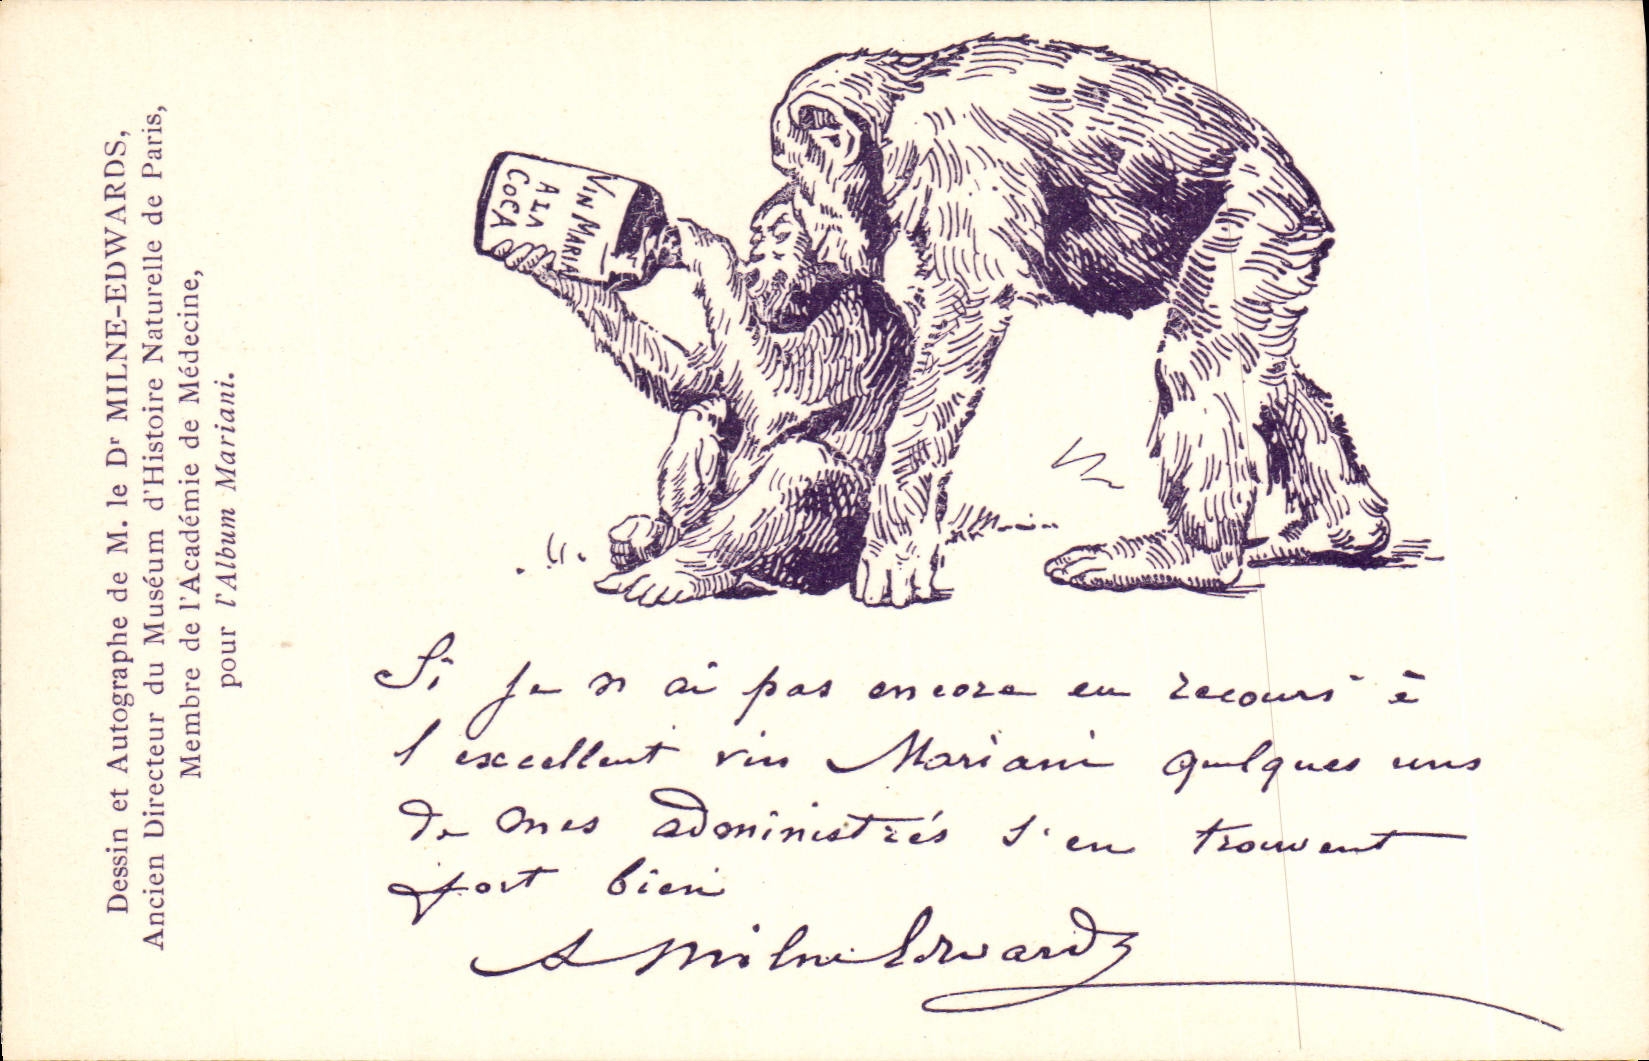 Dessin et Autographe de M. le Dr MILNE-EDWARDS,
Ancien Directeur du Muséum d'Histoire Naturelle de Paris,
Membre de l'Académie de Médecine,
pour l'Album Mariani.
VIN MARIA
A LA
COCA
Si je n ai pas encore eu recours à
l excellent vin Mariani quelques uns
de mes administrés s'en trouvent
fort bien
A Milne Edwards